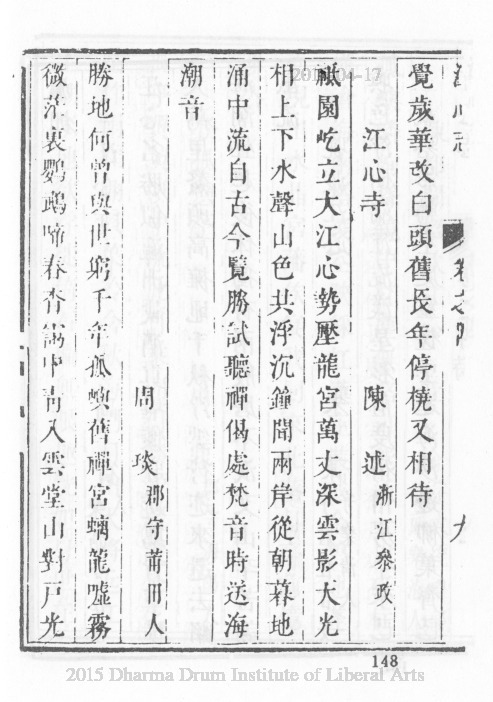 江心志
卷之四
九
覺歲華改白頭舊長年停橈又相待
江心寺 陳述 浙江叅政
祗園屹立大江心勢壓龍宮萬丈深雲影天光
相上下水聲山色共浮沉鐘聞兩岸從朝暮地
涌中流自古今覽勝試聽禪偈處梵音時送海
潮音
周琰 郡守莆田人
勝地何曾與世窮千年孤嶼舊禪宮螭龍噓霧
微茫裏鸚鵡啼春杳靄中青入雲堂山對戶光
2015-04-17
148
2015 Dharma Drum Institute of Liberal Arts